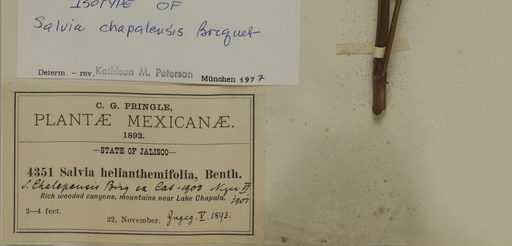 ISOTYPE OF
Salvia chapalensis Briquet
Determ. - rev. Kathleen M. Peterson München 1977
C. G. PRINGLE,
PLANTÆ MEXICANÆ.
1892.
STATE OF JALISCO
4351 Salvia helianthemifolia, Benth.
S. Chalapensis Briq ex Cat. 1900
1901
Rich wooded canyons, mountains near Lake Chapala.
2—4 feet.
22, November. V. 1893.